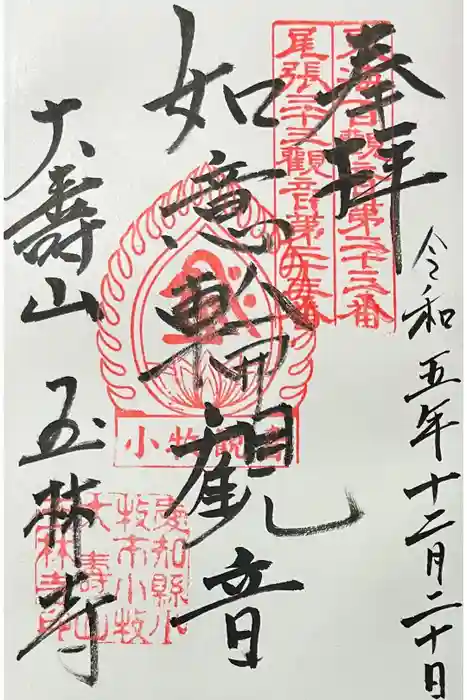 奉拝
令和五年十二月二十日
東海百觀音第二十三番
尾張三十三觀音第二十三番
如意輪観音
小牧観音
大壽山 玉林寺
愛知縣小
牧市小牧
大壽山
玉林寺印